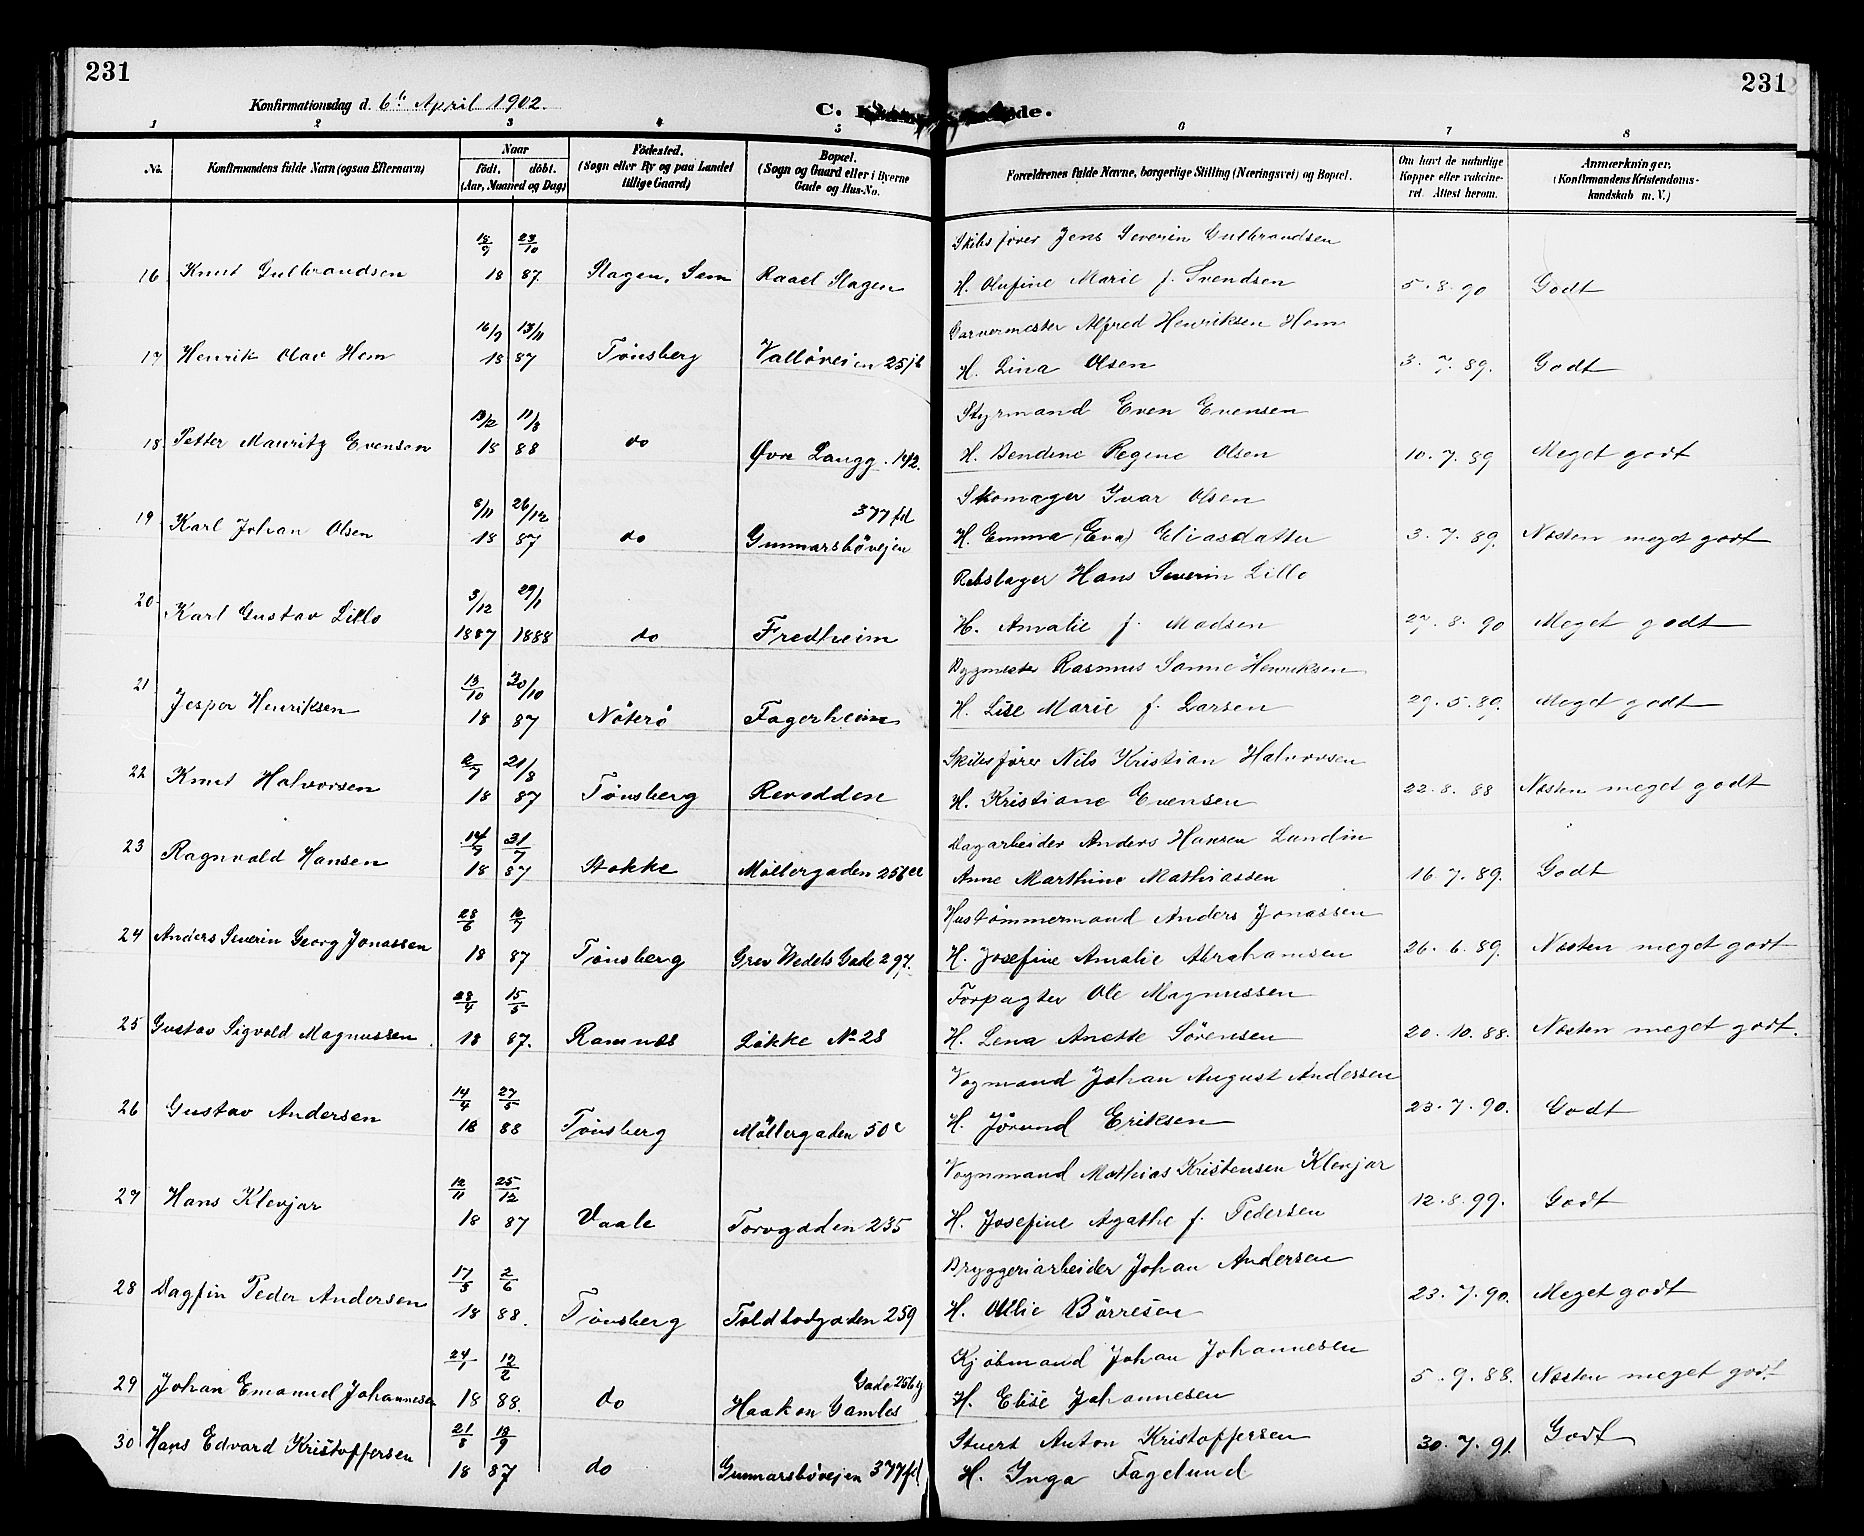 231
231
Konfirmationsdag d. 6te April 1902.
C. K de.
1 2 3 4 5 6 7 8
No. Konfirmandens fulde Navn (ogsaa Efternavn) Naar født. døbt. (Aar, Maaned og Dag) Fødested. (Sogn eller By og paa Landet tillige Gaard) Bopæl. (Sogn og Gaard eller i Byerne Gade og Hus-No. Forældrenes fulde Navne, borgerlige Stilling (Næringsvei) og Bopæl. Om havt de naturlige Kopper eller vaccineret. Attest herom. Anmærkninger. (Konfirmandens Kristendomskundskab m. V.)
18/9 23/10 Skibsfører Jens Severin Gulbrandsen
16 Knut Gulbrandsen 18 87. Slagen, Sem Raael Slagen H. Olufine Marie f. Svendsen 5.8.90 Godt
16/9 13/11 Garvermester Alfred Henriksen Hem
17 Henrik Olav Hem 18 87 Tønsberg Valløveien 25jb H. Lina Olsen 3.7.89. Godt
13/12 11/3 Styrmand Even Evensen
18 Petter Mauritz Evensen 18 88 do Øvre Langg. 142. H. Bendine Regine Olsen 10.7.89 Meget godt
8/11 26/12 377fd Skomager Ivar Olsen
19 Karl Johan Olsen 18 87 do Gunnarsbøvejen H. Emma (Eva) Eliasdatter 3.7.89. Næsten meget godt
3/12 29/1 Rebslager Hans Severin Lillo
20 Karl Gustav Lillo 1887 1888 do Fredheim H. Amalie f. Madsen 27.8.90 Meget godt
13/10 30/10 Bygmester Rasmus Sanne Henriksen
21 Jesper Henriksen 18 87 Nøterø Fagerheim H. Lise Marie f. Larsen 29.5.89. Meget godt
2/7 21/8 Skibsfører Nils Kristian Halvorsen
22 Knut Halvorsen 18 87 Tønsberg Revodden H. Kristiane Evensen 22.8.88 Næsten meget godt
14/7 31/7 Dagarbeider Anders Hansen Lundin
23 Ragnvald Hansen 18 87 Stokke Møllergaden Anne Marthine Mathiassen 16.7.89. Godt
28/6 Hustømmermand Anders Jonassen
24 Anders Severin Georg Jonassen 18 87 Tønsberg Grev Wedels Gade 297. H. Josefine Amalie Abrahamsen 26.6.89. Næsten meget godt
28/4 15/5 Forpagter Ole Magnussen
25 Gustav Sigvald Magnussen 18 87. Ramnæs Løkke No 28 H. Lena Anette Sørensen 20.10.88. Næsten meget godt.
14/4 27/5 Vogmand Johan August Andersen
26 Gustav Andersen 18 88 Tønsberg Møllergaden 50c H. Jørund Eriksen 23.7.90. Godt
12/11 25/12 Vognmand Mathias Kristensen Klevjar
27 Hans Klevjar 18 87 Vaale Torvgaden 235 H. Josefine Agathe f. Pedersen 12.8.99. Godt
17/3 2/6 Bryggeriarbeider Johan Andersen
28 Dagfin Peder Andersen 18 88. Tønsberg Toldbodgaden 259 H. Børresen 23.7.90. Meget godt
24/1 12/2 Gade 256g Kjøbmand Johan Johannesen
29 Johan Emanuel Johannesen 18 88. do Haakon Gamles H. Elise Johannesen 5.9.88. Næsten meget godt
21/8 18/9 Stuert Anton Kristoffersen
30 Hans Edvard Kristoffersen 18 87 do Gunnarsbøvejen 377fd H. Inga Fagelund 30.7.91. Godt